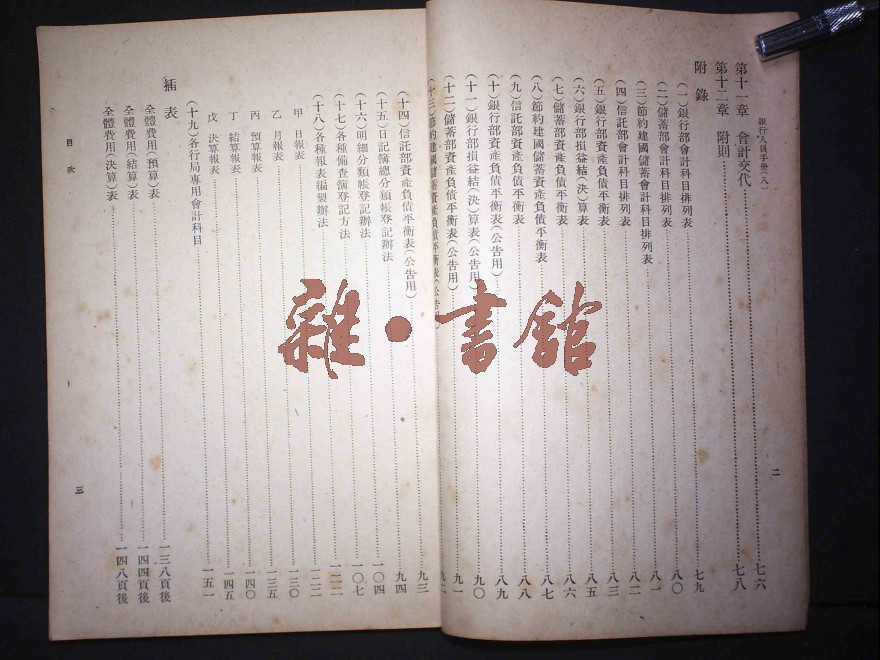 銀行人員手冊(八)
二
第十一章 會計交代 七六
第十二章 附則 七八
附錄 七九
(一)銀行部會計科目排列表 八〇
(二)儲蓄部會計科目排列表 八一
(三)節約建國儲蓄會計科目排列表 八二
(四)信託部會計科目排列表 八三
(五)銀行部資產負債平衡表 八五
(六)銀行部損益結(決)算表 八六
(七)儲蓄部資產負債平衡表 八七
(八)節約建國儲蓄資產負債平衡表 八八
(九)信託部資產負債平衡表 八九
(十)銀行部資產負債平衡表(公告用) 九〇
(十一)銀行部損益結(決)算表(公告用) 九一
(十二)儲蓄部資產負債平衡表(公告用)
(十三)節約建國儲蓄資產負債平衡表(公告用 九三
(十四)信託部資產負債平衡表(公告用) 九四
(十五)日記簿總分類帳登記辦法 一〇四
(十六)明細分類帳登記辦法 一〇七
(十七)各種備查簿登記方法 一二二
(十八)各種報表編製辦法 一二二
甲 日報表 一三〇
乙 月報表 一三五
丙 預算報表 一四〇
丁 結算報表 一四五
戊 決算報表 一五一
(十九)各行局專用會計科目
插表
全體費用(預算)表 一三八頁後
全體費用(結算)表 一四四頁後
全體費用(決算)表 一四八頁後
目次
三
雜•書館